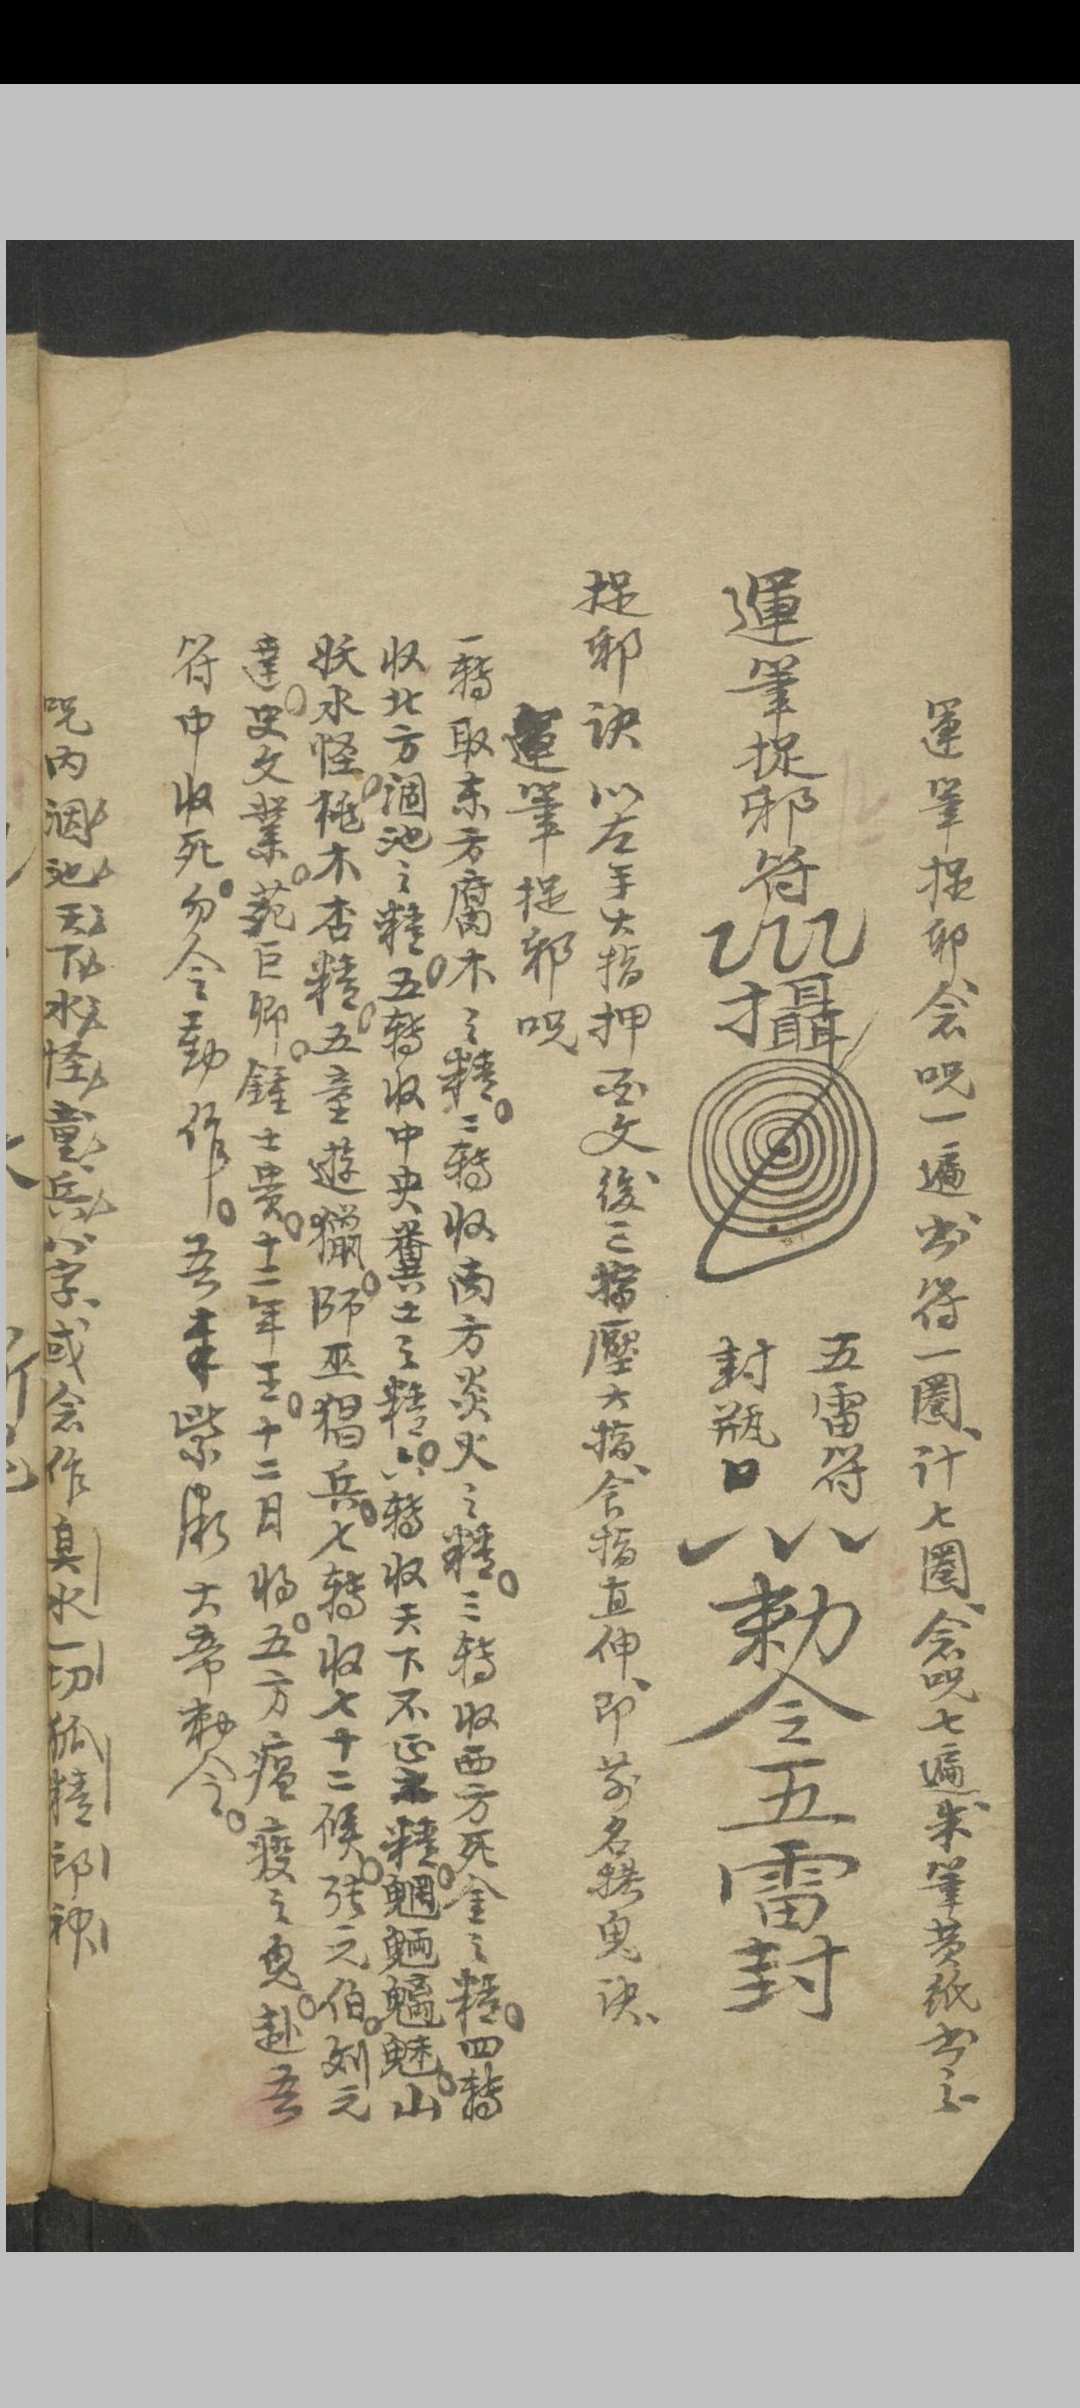 運筆捉邪、念咒一遍书符一圈、計七圈、念咒七遍、朱筆黄紙书之
運筆捉邪符
攝
五雷符
封瓶口
勅令五雷封
捉邪訣 以左手大指押 文後三指壓大指、食指直伸、即 名 鬼訣、
運筆捉邪咒
一轉取東方腐木之精。二轉收南方炎火之精。三轉收西方死金之精。四轉
收北方涸池之精。五轉收中央糞土之精。六轉收天下不正之精。魍魎魑魅。山
妖水怪。桃木杏精。五童遊獵。師巫猖兵。七轉收七十二候。張元伯。刘元
達。史文業。范巨卿。鍾士貴。十二年王。十二月將。五方瘟疫之鬼。赴吾
符中收死。勿令動作。吾奉紫微大帝勅令。
咒内涸池天下水怪童兵八字、或念作臭水一切狐精邪神